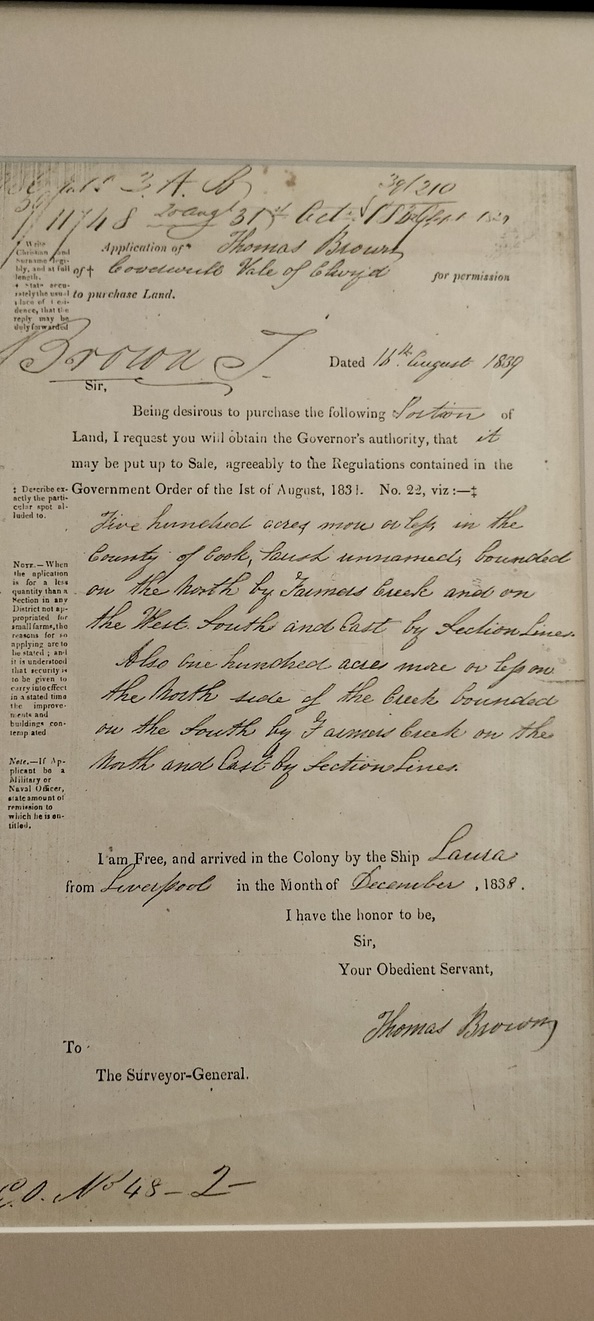 39/210
11748 20 Augt 31st Oct
Application of* Thomas Brown
of† Cooerwull Vale of Clwyd for permission
to purchase Land.
* Write
Christian and
Surname legi-
bly, and at full
length.
† State accu-
rately the usual
place of resi-
dence, that the
reply may be
duly forwarded
Brown T.
Dated 16th August 1839
Sir,
Being desirous to purchase the following Portion of
Land, I request you will obtain the Governor's authority, that it
may be put up to Sale, agreeably to the Regulations contained in the
Government Order of the 1st of August, 1831. No. 22, viz :—‡
‡ Describe ex-
actly the parti-
cular spot al-
luded to.
Five hundred acres more or less in the
County of Cook, Parish unnamed, bounded
on the North by Farmers Creek and on
the West South and East by Section Lines.
Also one hundred acres more or less on
the North side of the Creek bounded
on the South by Farmers Creek on the
North and East by Section Lines.
NOTE.—When
the aplication
is for a less
quantity than a
Section in any
District not ap-
propriated for
small farms, the
reasons for so
applying are to
be stated ; and
it is understood
that security is
to be given to
carry into effect
in a stated time
the improve-
ments and
buildings con-
templated
Note.—If Ap-
plicant be a
Military or
Naval Officer,
state amount of
remission to
which he is en-
titled.
I am Free, and arrived in the Colony by the Ship Laura
from Liverpool in the Month of December , 1838.
I have the honor to be,
Sir,
Your Obedient Servant,
Thomas Brown
To
The Surveyor-General.
No 48-2-